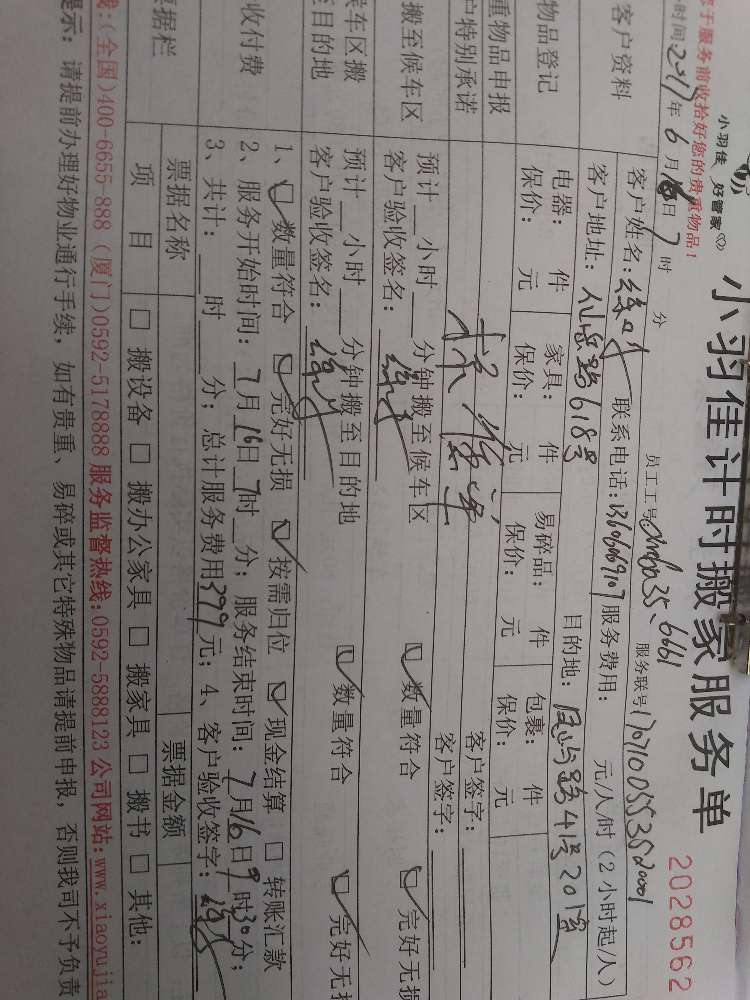 您于服务前收拾好您的贵重物品!
小羽佳 好管家
小羽佳计时搬家服务单
2028562
时间 年6月 日7时 分
员工工号 服务联号
客户资料
客户姓名: 联系电话: 服务费用: 元/人/时(2小时起/人)
客户地址:仙岳路618号 目的地: 路41号201室
物品登记
电器: 件 家具: 件 易碎品: 件 包裹: 件
保价: 元 保价: 元 保价: 元 保价: 元
重物品申报
客户签字:
户特别承诺
客户签字:
搬至候车区
预计__小时__分钟搬至候车区 数量符合 完好无损
客户验收签名:
候车区搬至目的地
预计__小时__分钟搬至目的地 数量符合 完好无损
客户验收签名:
收付费
1、 数量符合 完好无损 按需归位 现金结算 □ 转账汇款
2、服务开始时间:7月16日7时__分;服务结束时间:7月16日9时30分;
3、共计:__时__分;总计服务费用399元;4、客户验收签字:
票据栏
票据名称 票据金额
项 目 □ 搬设备 □ 搬办公家具 □ 搬家具 □ 搬书 □ 其他:
线:(全国)400-6655 888 (厦门)0592-5178888 服务监督热线:0592-5888123 公司网站:www.xiaoyujia
提示: 请提前办理好物业通行手续,如有贵重、易碎或其它特殊物品请提前申报,否则我司不予负责